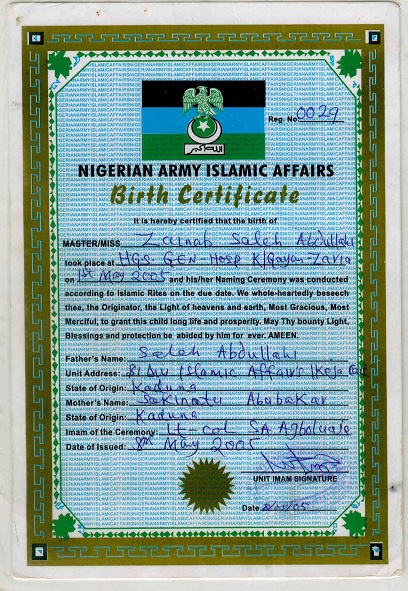 Reg. No 0029
الله اكبر
NIGERIAN ARMY ISLAMIC AFFAIRS
Birth Certificate
It is hereby certified that the birth of
MASTER/MISS Zainab Saleh Abdullahi
took place at HQs GEN Hosp K/Gayan-Zaria
on 1st May 2005 and his/her Naming Ceremony was conducted
according to Islamic Rites on the due date. We whole-heartedly beseech
thee, the Originator, the Light of heavens and earth, Most Gracious, Most
Merciful, to grant this child long life and prosperity. May Thy bounty Light,
Blessings and protection be abided by him for ever. AMEEN.
Father's Name: Saleh Abdullahi
Unit Address: 81 Div Islamic Affairs Ikeja
State of Origin: Kaduna
Mother's Name: Sakinatu Abubakar
State of Origin: Kaduna
Imam of the Ceremony: Lt-col SA Agbaluaje
Date of Issued: 8th May 2005
UNIT IMAM SIGNATURE
Date